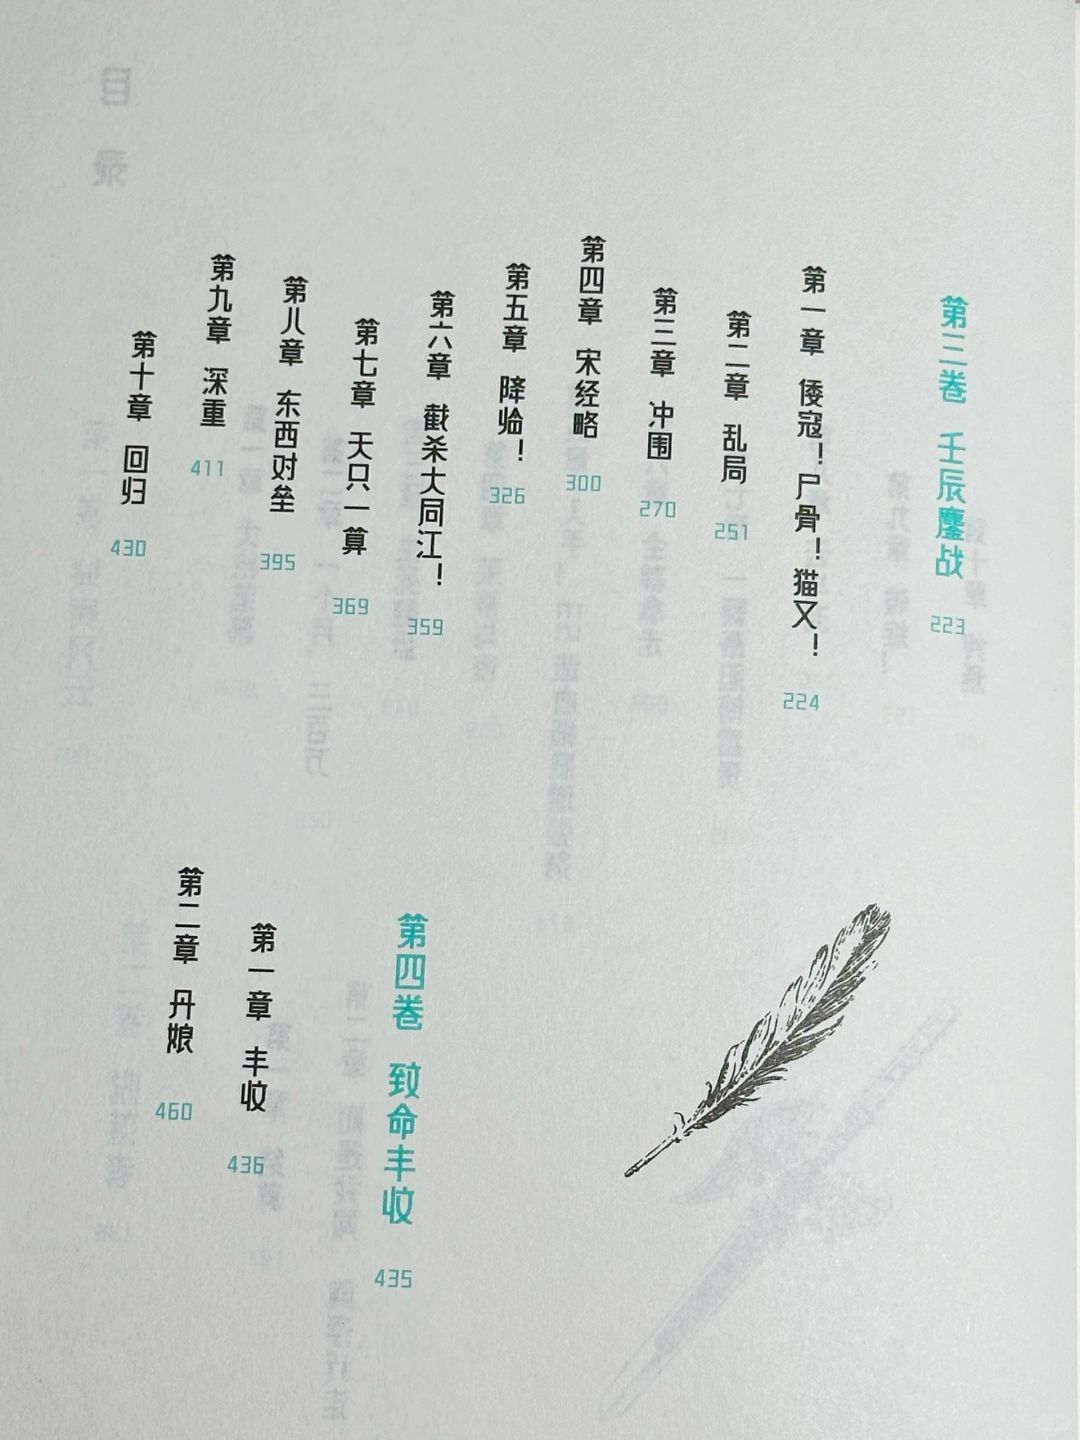 第三卷 壬辰鏖战 223
第一章 倭寇！尸骨！猫又！ 224
第二章 乱局 251
第三章 冲围 270
第四章 宋经略 300
第五章 降临！ 326
第六章 截杀大同江！ 359
第七章 天只一算 369
第八章 东西对垒 395
第九章 深重 411
第十章 回归 430
第四卷 致命丰收 435
第一章 丰收 436
第二章 丹娘 460
目录